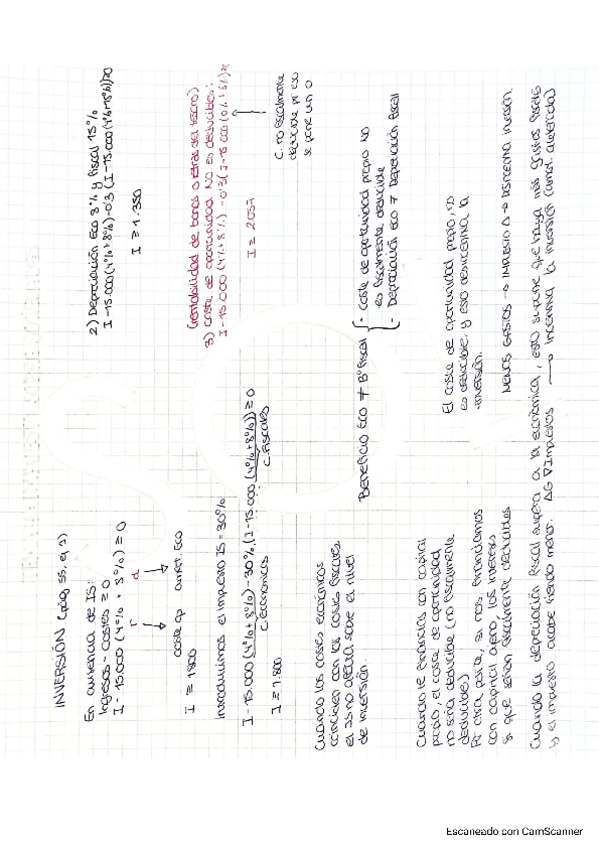 INVERSIÓN (pág. 55, ej 2)
En ausencia de IS:
Ingresos - Costes ≥ 0
I - 15.000 (4% + 8%) ≥ 0
r d
coste op amort. Eco
I ≥ 1800
Introducimos el impuesto IS = 30%
I - 15.000 (4% + 8%) - 30% (I - 15.000 (4% + 8%)) ≥ 0
C. Económicos C. Fiscales
I ≥ 1.800
Cuando los costes económicos
coinciden con los costes fiscales
el IS no afecta sobre el nivel
de inversión.
Cuando te financias con capital
propio, el coste de oportunidad
no sería deducible (no fiscalmente
deducible)
Por otra parte, si nos financiamos
con capital ajeno, los intereses
si que serían fiscalmente deducibles
Cuando la depreciación fiscal supera a la económica, esto supone que haya más gastos fiscales
y el impuesto acabe siendo menor. ΔG ∇Impuestos → Incentiva la inversión (amort. acelerada)
2) Depreciación Eco 8% y fiscal 15%
I - 15.000 (4% + 8%) - 0'3 (I - 15.000 (4% + 15%)) ≥ 0
I ≥ 1.350
(rentabilidad de bonos o letras del tesoro)
3) Coste de oportunidad No es deducible:
I - 15.000 (4% + 8%) - 0'3 (I - 15.000 (0% + 8%)) ≥
I ≥ 2057
C. no fiscalmente
deducible por eso
se pone un 0
Beneficio Eco ≠ Bº Fiscal
- Coste de oportunidad propio no
es fiscalmente deducible
- Depreciación Eco ≠ Depreciación fiscal
El coste de oportunidad propio, no
es deducible, y esto desincentiva la
inversión.
MENOS GASTOS → IMPUESTO Δ → DISINCENTIVA INVERSIÓN.
Escaneado con CamScanner